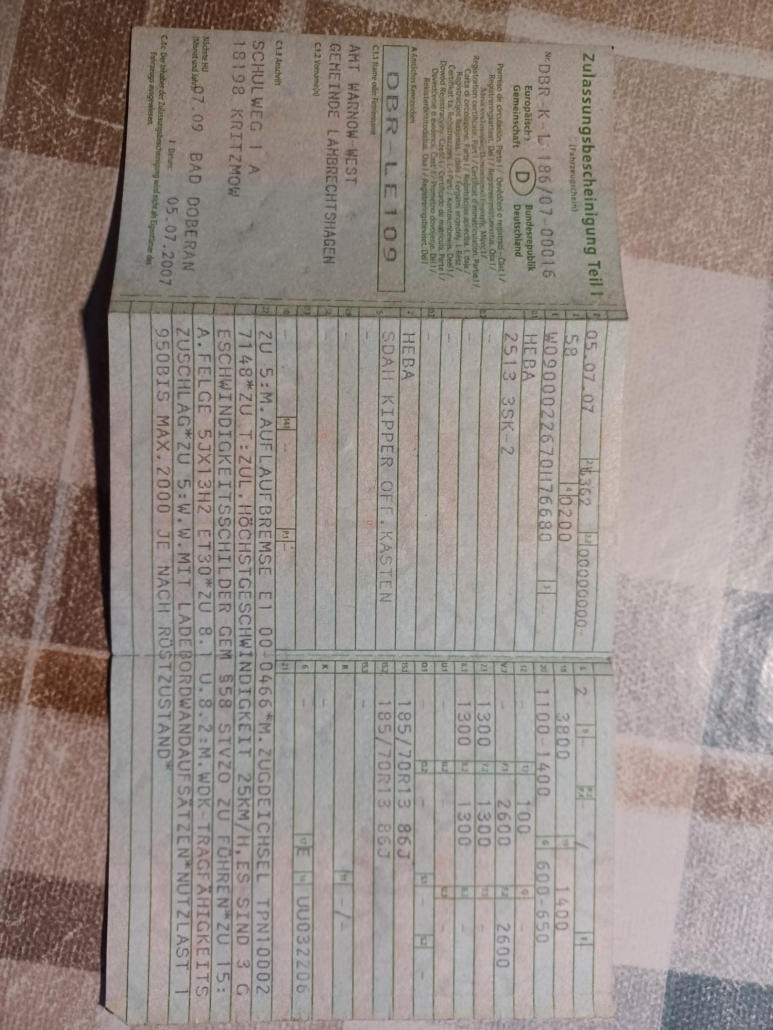 Zulassungsbescheinigung Teil I
(Fahrzeugschein)
Nr. DBR-K L 186/07-00016
Europäische Gemeinschaft
D
Bundesrepublik Deutschland
A Amtliches Kennzeichen
DBR-LE109
C.1.1 Name oder Firmenname
AMT WARNOW-WEST
GEMEINDE LAMBRECHTSHAGEN
C.1.2 Vorname(n)
C.1.3 Anschrift
SCHULWEG 1 A
18198 KRITZMOW
Nächste HU
(Monat und Jahr)
07.09 BAD DOBERAN
I Datum:
05.07.2007
C.4c Der Inhaber der Zulassungsbescheinigung wird nicht als Eigentümer des
Fahrzeugs ausgewiesen.
05.07.07 6362 00000000-
58 0200
W0900022670H76680 -
HEBA
2513 3SK-2
-
-
-
HEBA
SDAH KIPPER OFF.KASTEN
-
-
-
- - -
2 - /
3800 1400
1100-1400 600-650
- 100 -
2600 2600
1300 1300 -
1300 1300 -
- - -
- - - -
185/70R13 86J
185/70R13 86J
-
- -/-
-
- E UU032206
ZU 5:M.AUFLAUFBREMSE E1 00-0466*M.ZUGDEICHSEL TPN10002
7148*ZU T:ZUL.HÖCHSTGESCHWINDIGKEIT 25KM/H,ES SIND 3 G
ESCHWINDIGKEITSSCHILDER GEM §58 STVZO ZU FÜHREN*ZU 15:
A.FELGE 5JX13H2 ET30*ZU 8.1 U.8.2:M.WDK-TRAGFÄHIGKEITS
ZUSCHLAG*ZU 5:W.W.MIT LADEBORDWANDAUFSÄTZEN*NUTZLAST 1
950BIS MAX.2000 JE NACH RÜSTZUSTAND*